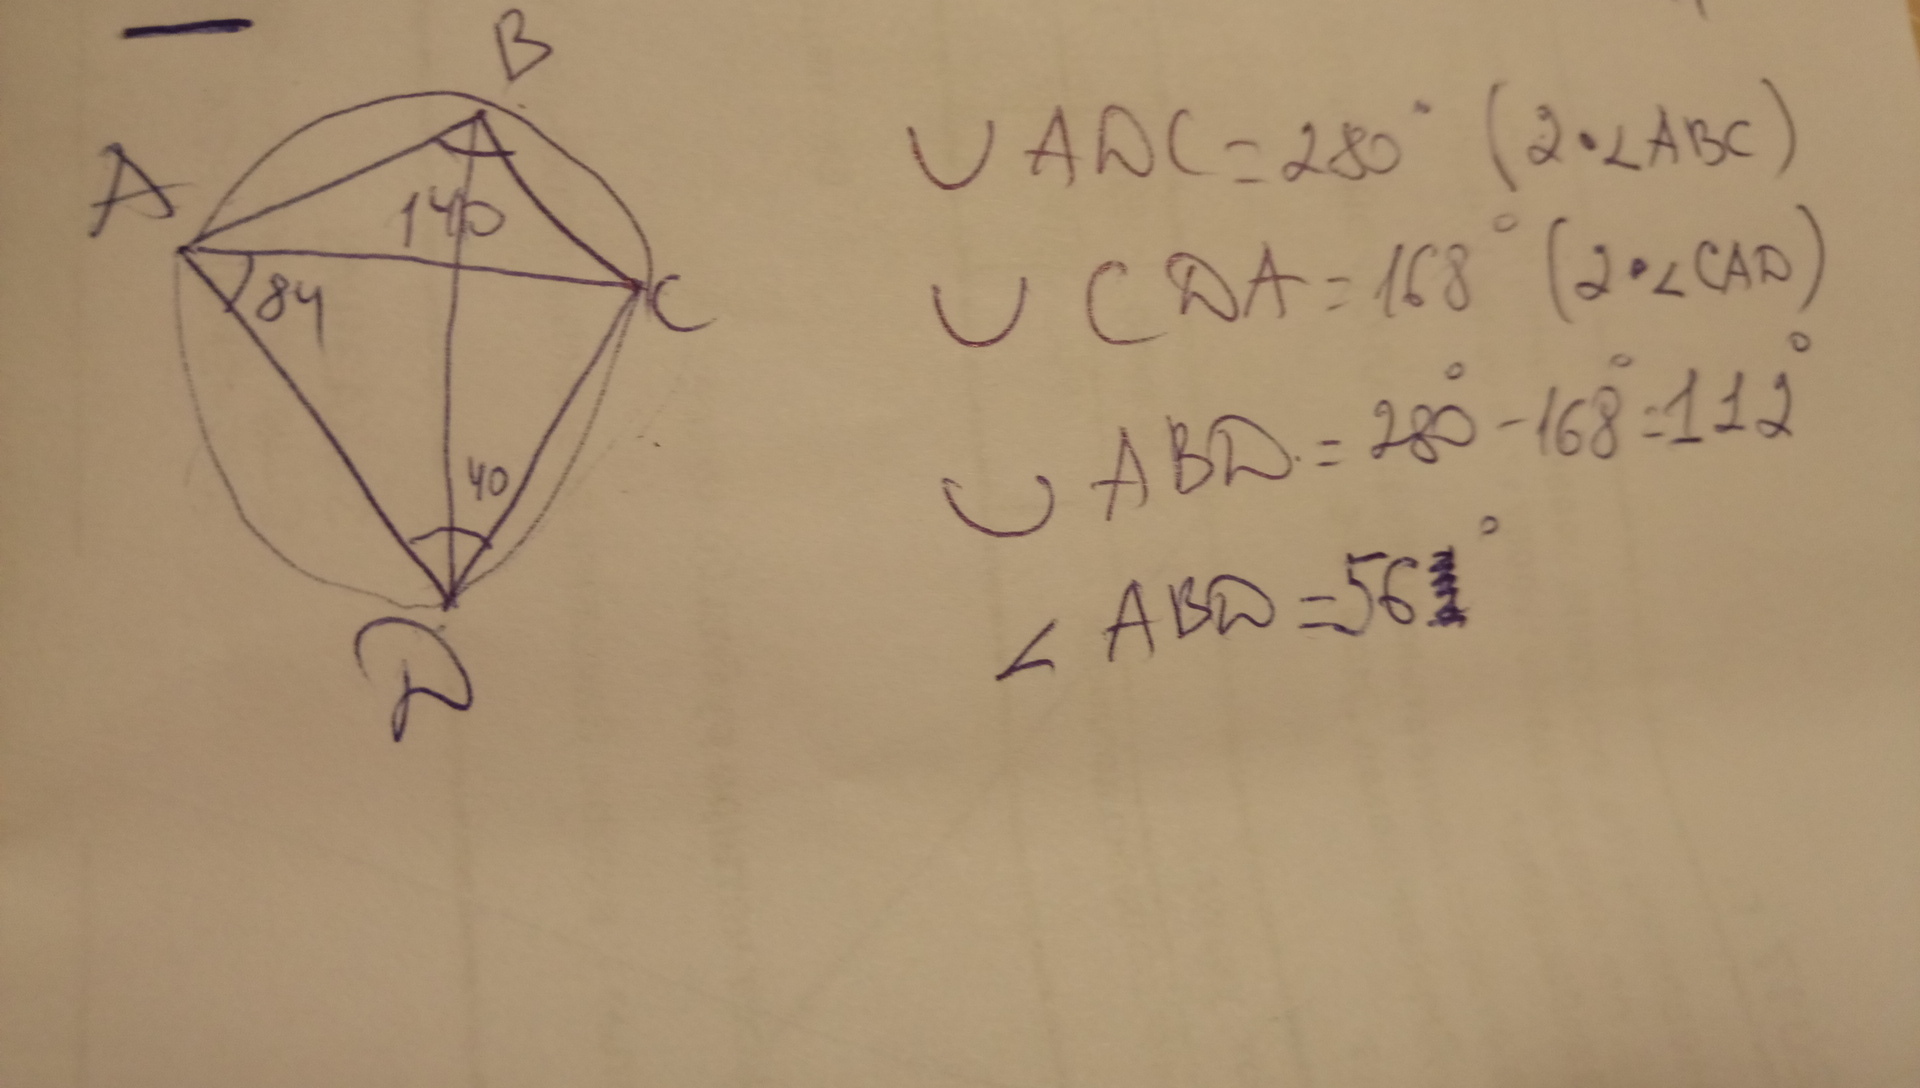 B
A
140
84
C
40
D
∪ ADC = 280° (2·∠ABC)
∪ CDA = 168° (2·∠CAD)
∪ ABD = 280° - 168° = 112°
∠ ABD = 56°